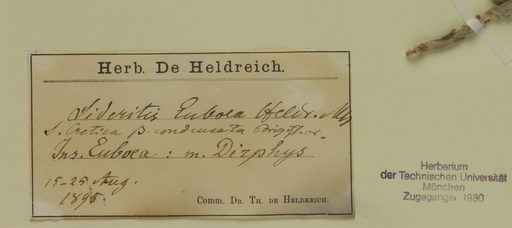 Herb. De Heldreich.
Sideritis Euboea Heldr.
S. Cretica β condensata
Ins. Euboea : m. Dirphys
15-25 Aug.
1895.
Comm. Dr. Th. de Heldreich.
Herbarium
der Technischen Universität
München
Zugegangen 1980